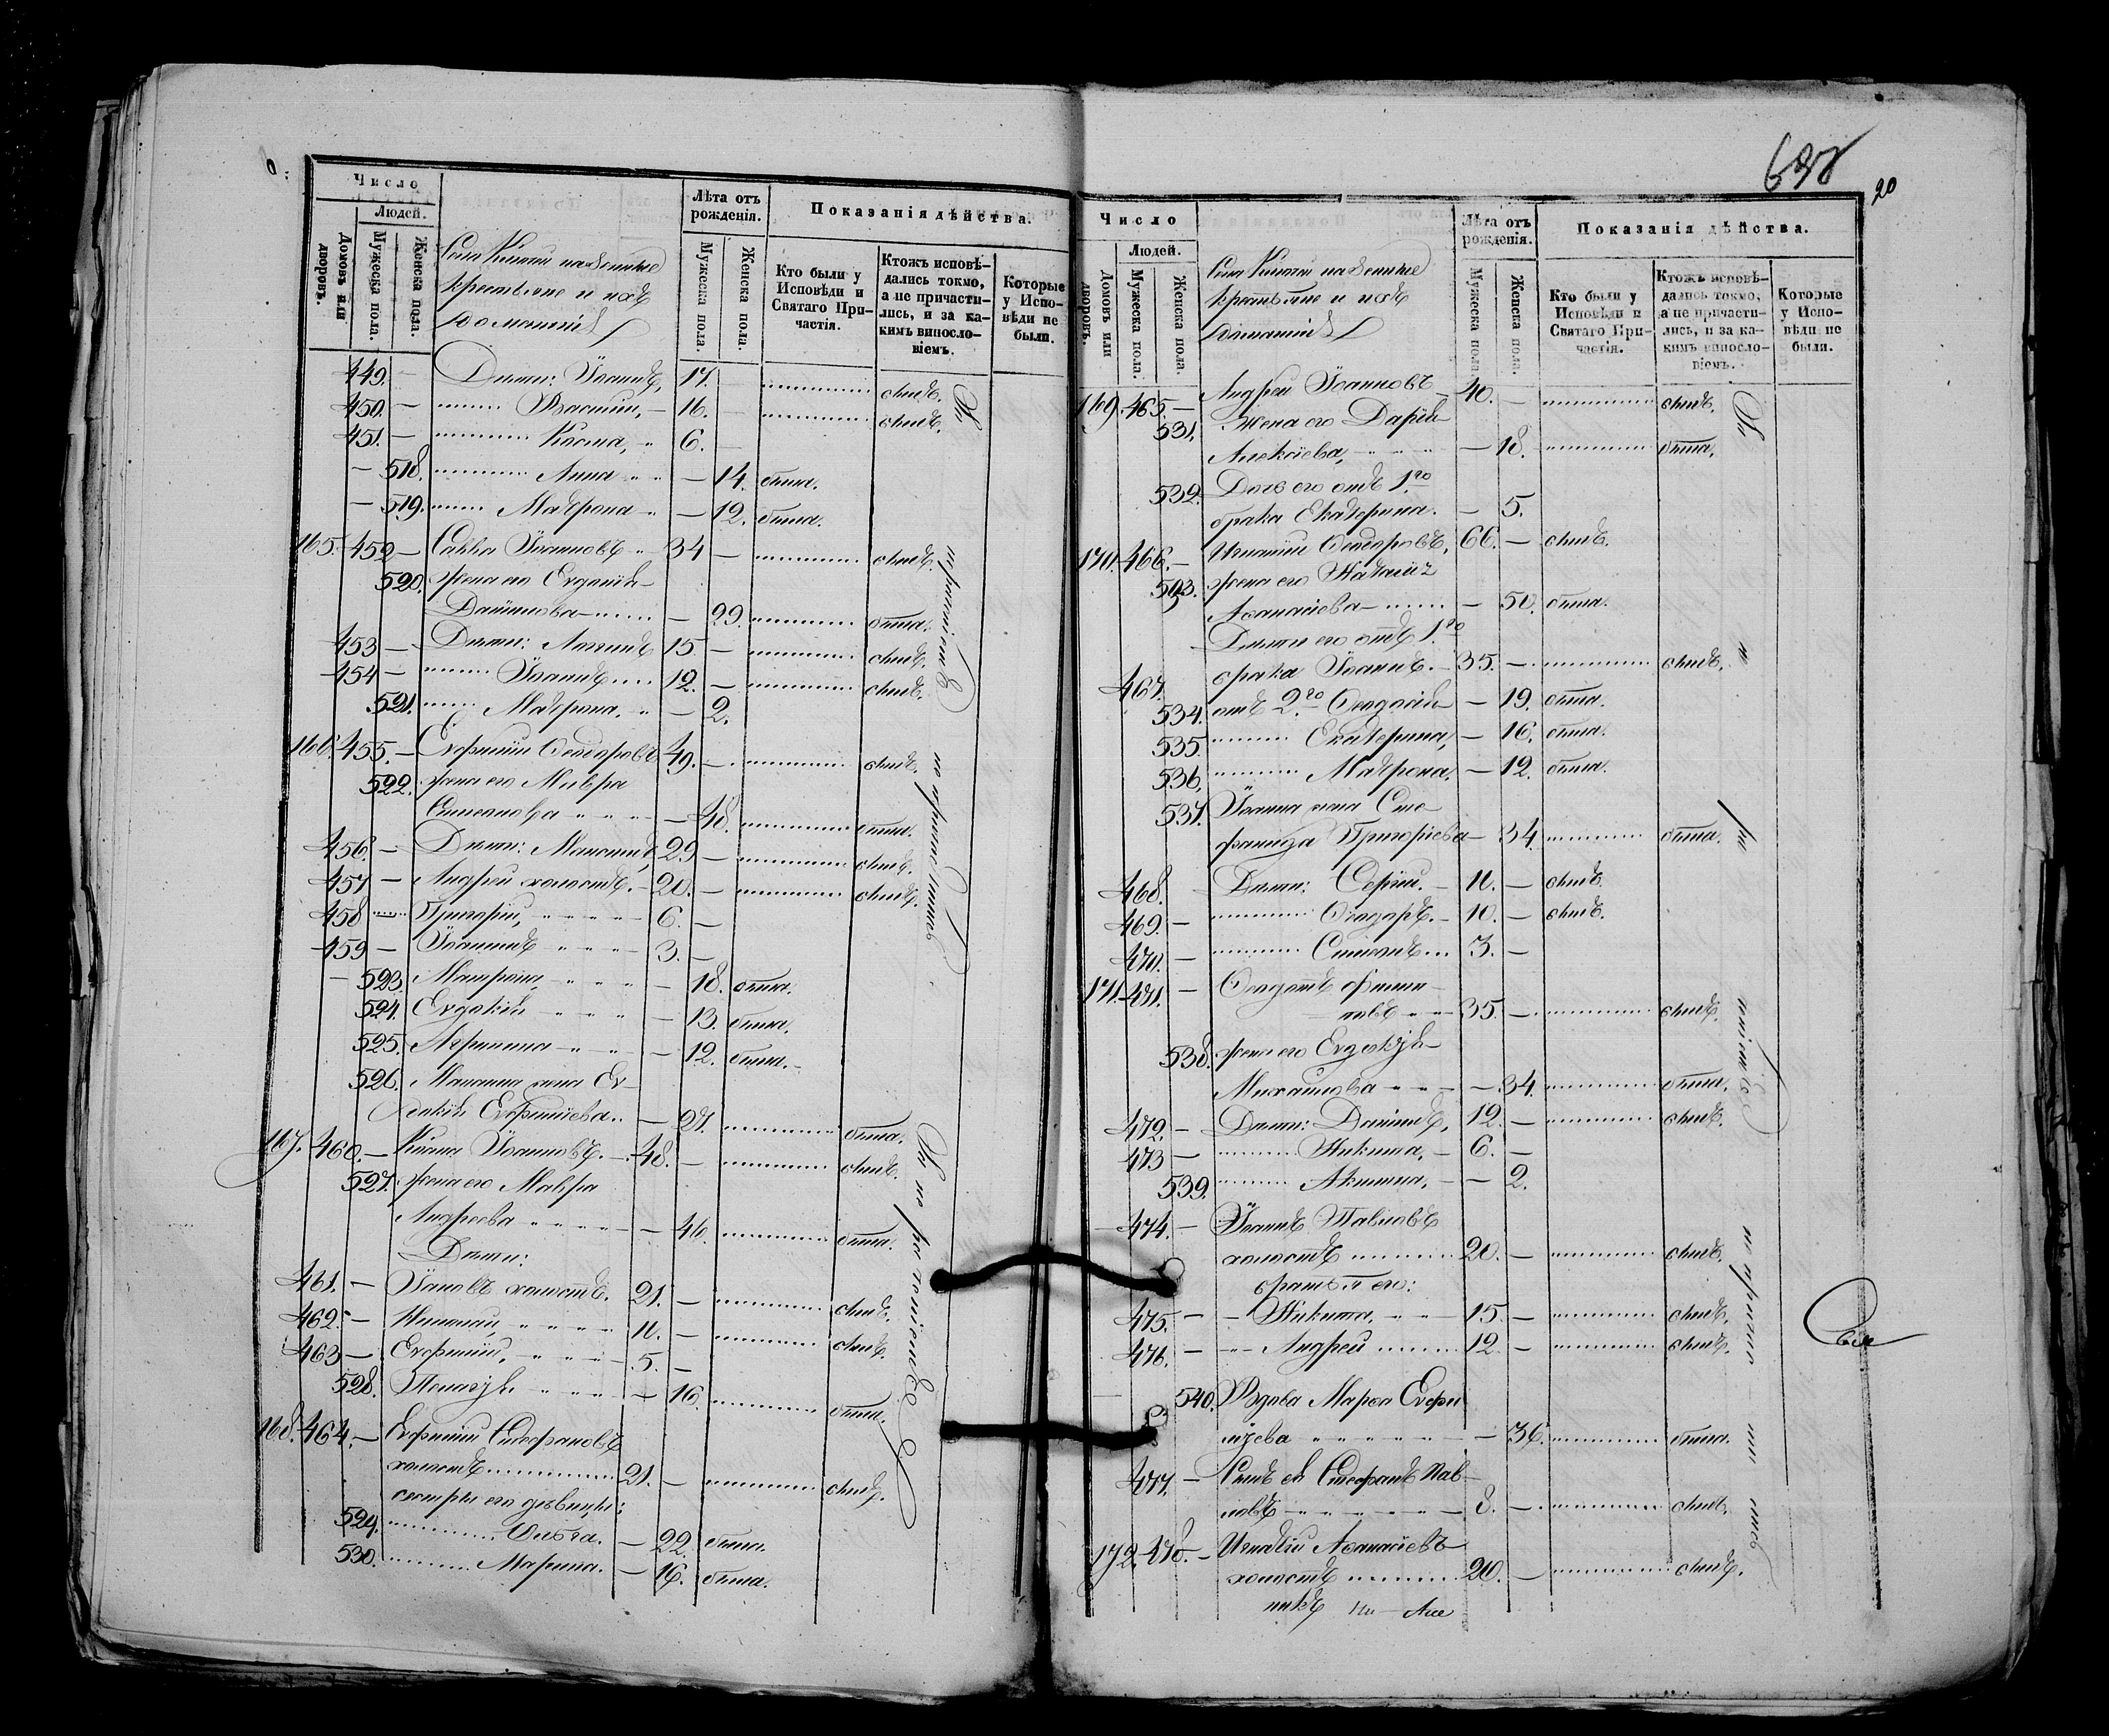 Число
Людей.
Домовъ или дворовъ.
Мужеска пола.
Женска пола.
крестьяне и ихъ
домашніе
Лѣта отъ рожденія.
Мужеска пола.
Женска пола.
Показанія дѣйства.
Кто были у Исповѣди и Святаго Причастія.
Ктожъ исповѣ-
дались токмо,
а не причасти-
лись, и за ка-
кимъ винosло-
віемъ.
Которые
у Испо-
вѣди не
были.
449. — Дѣти: Іоаннъ, 17. — бытъ.
450. — Василій, — 16. — бытъ.
451. — Косма, 6. —
— 518. Анна — 14. была.
— 519. Матрона — 12. была.
165. 452 — Савва Іоанновъ 34 — бытъ.
520. жена его Евдокія
Даніилова — 29. была.
453 — Дѣти: Логинъ 15 — бытъ.
454 — Іоаннъ 12. — бытъ.
521. Матрона. — 2.
166. 455. — Евфимій Ѳеодоровъ 49. — бытъ.
522. жена его Мавра
Симеонова — 48. была.
456. — Дѣти: 29 — бытъ.
457 — Андрей холостъ. 20. — бытъ.
458 — Григорій, 6. —
459 — Іоаннъ 3. —
— 523. Матрона, — 18. была.
524. Евдокія — 13. была.
525. Агрипина — 12. была.
526. жена Ев-
докія Евфиміева. — 27. была.
167. 460. — Іоанновъ. 48. — бытъ.
527. жена его Мавра
Андреева — 46. была.
Дѣти:
461. — Іаковъ холостъ. 21. — бытъ.
462. — 11. — бытъ.
463 — Евфимій, 5. —
528. Пелагія — 16. была.
168. 464. — Евфимій Стефановъ
холостъ 21. — бытъ.
сестры его дѣвицы:
529. Ольга. — 22. была.
530. Марина. — 16. была.
638
20
Число
Людей.
Домовъ или дворовъ.
Мужеска пола.
Женска пола.
крестьяне и ихъ
домашніе
Лѣта отъ рожденія.
Мужеска пола.
Женска пола.
Показанія дѣйства.
Кто были у Исповѣди и Святаго Причастія.
Ктожъ исповѣ-
дались токмо,
а не причасти-
лись, и за ка-
кимъ виносло-
віемъ.
Которые
у Испо-
вѣди не
были.
169. 465. — Андрей Іоанновъ 40. — бытъ.
531. Жена его Дарія
Алексіева, — 18. была.
532. Дочь его отъ 1го
брака Екатерина. — 5.
170. 466. — Игнатій Ѳеодоровъ, 66. — бытъ.
533. жена его Наталія
Аѳанасіева — 50. была.
Дѣти его отъ 1го
467. брака Іоаннъ. 35. — бытъ.
534. отъ 2го Ѳеодосія — 19. была.
535. Екатерина, — 16. была.
536. Матрона. — 12. была.
537. Іоанна жена Сте-
фанида Григоріева — 34. была.
468. Дѣти: Сергій. — 11. — бытъ.
469. — Ѳеодоръ. — 10. — бытъ.
470. — Симеонъ 3. —
171. 471. — Ѳеодотъ Филип-
повъ 35. — бытъ.
538. жена его Евдокія
Михайлова — 34. была.
472. — Дѣти: Даніилъ, 12. — бытъ.
473 — Никита, — 6. —
539. Акилина, — 2.
474. — Іоаннъ Павловъ
холостъ 20. — бытъ.
братья его:
475. — Никита, 15. — бытъ.
476. — Андрей 12. — бытъ.
540. Вдова Марѳа Евфи
міева — 36. была.
477. — Сынъ ея Стефанъ Пав-
ловъ 8. — бытъ.
172. 478. — Игнатій Аѳанасіевъ
холостъ 20. — бытъ.